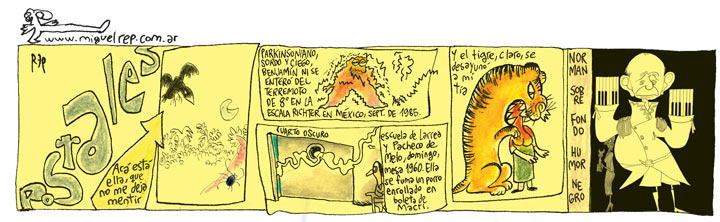 www.miguelrep.com.ar
Rep
Postales
Acá está
ella, que
no me deja
mentir
PARKINSONIANO,
SORDO Y CIEGO,
BENJAMÍN NI SE
ENTERÓ DEL
TERREMOTO
DE 8° EN LA
ESCALA RICHTER EN MÉXICO, SEPT. DE 1985.
CUARTO OSCURO
escuela de Larrea
y Pacheco de
Melo, domingo,
mesa 1960. Ella
se fuma un porro
enrollado en
boleta de
Macri.
Y el tigre, claro, se
desayunó
a mi
tía
NOR
MAN
SOB
RE
FON
DO
HU
MOR
NE
GRO